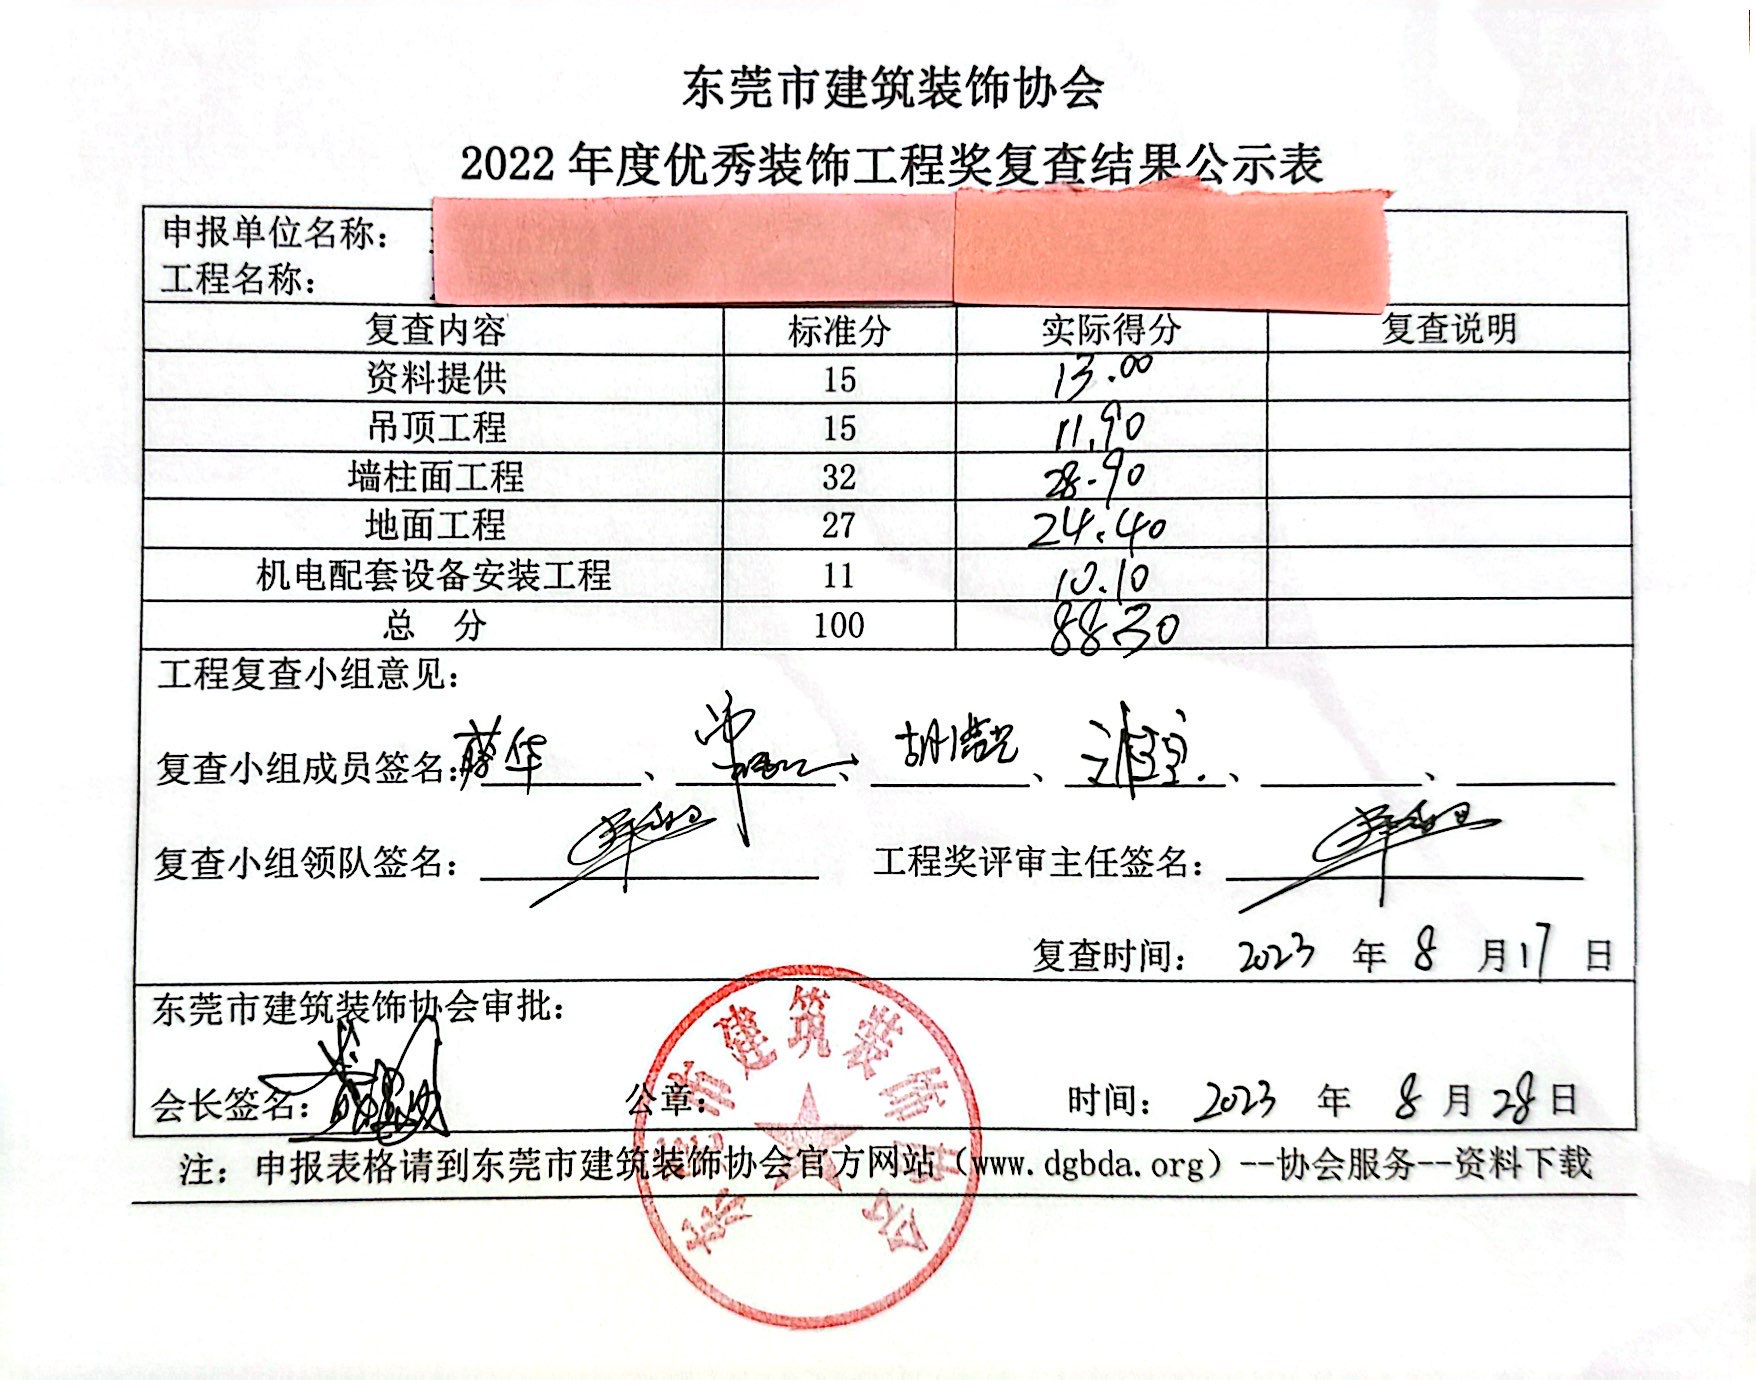 东莞市建筑装饰协会
2022 年度优秀装饰工程奖复查结果公示表
申报单位名称：
工程名称：
复查内容 标准分 实际得分 复查说明
资料提供 15 13.00
吊顶工程 15 11.90
墙柱面工程 32 28.90
地面工程 27 24.40
机电配套设备安装工程 11 10.10
总 分 100 88.30
工程复查小组意见：
复查小组成员签名：
复查小组领队签名： 工程奖评审主任签名：
复查时间： 2023 年 8 月 17 日
东莞市建筑装饰协会审批：
会长签名： 公章： 时间： 2023 年 8 月 28 日
注：申报表格请到东莞市建筑装饰协会官方网站（www.dgbda.org）--协会服务--资料下载
东莞市建筑装饰协会